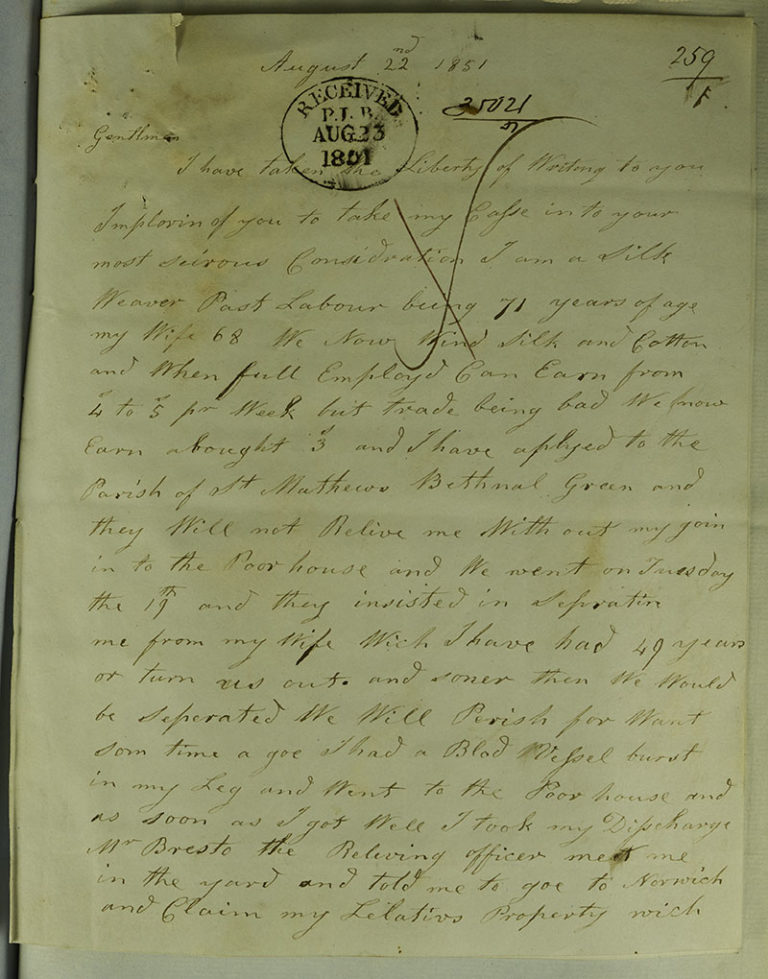 August 22nd 1851
259
F
RECEIVED
P.L.B.
AUG 23
1851
35021
51
Gentlmen
I have taken the Liberty of Writeing to you
Implorin of you to take my Casse in to your
most seirous Considration I am a Silk
Weaver Past Labour being 71 years of age
my Wife 68 We Now Wind Silk and Cotton
and When full Employd Can Earn from
4s to 5s pr Week but trade being bad We know
Earn abought 3s and I have aplyed to the
Parish of St Mathews Bethnal Green and
they Will not Relive me With out my join
in to the Poor house and We went on Tuesday
the 19th and they insisted in Sepratin
me from my Wife Wich I have had 49 years
or turn us out. and soner then We Would
be Seperated We Will Perish for Want
som time a goe I had a Blod Vessel burst
in my Leg and Went to the Poor house and
as soon as I got Well I took my Discharge
Mr Bresto the Reliving officer meet me
in the yard and told me to goe to Norwich
and Claim my Lelativs Property wich